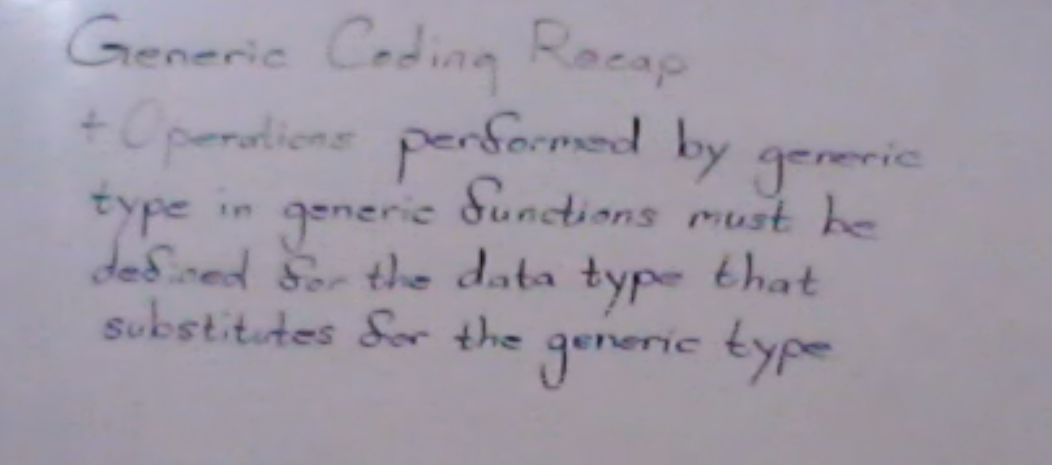 Generic Coding Recap
+ Operations performed by generic
type in generic functions must be
defined for the data type that
substitutes for the generic type